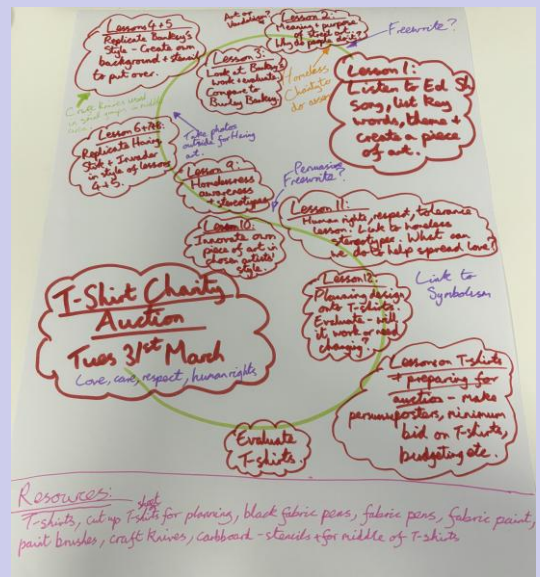 Lessons 4+5
Replicate Banksy's
Style - Create own
background + stencil
to put over.
Craft knives used
Art or
Vandalism?
Lesson 2:
Meaning + purpose
of street art.
Why do people do it?
Freewrite?
Lesson 3:
Look at Banksy's
work + evaluate
Compare to
Burley Banksy
Homeless
Charity to
do assem
Lesson 1:
Listen to Ed
song, list key
words, theme +
create a piece
of art.
Replicate Haring
Stik + Invader
in style of lessons
4+5.
Take photos
outside for Haring
art.
Lesson 9:
Homelessness
awareness
+ stereotypes
Persuasive
Freewrite?
Lesson 10:
Innovate own
piece of art in
chosen artists'
style.
Lesson 11:
Human rights, respect, tolerance
lesson. Link to homeless
stereotypes. What can
we do to help spread love?
Link to
Symbolism
Lesson 12
Planning design
onto T-shirts.
Evaluate - will
it work or need
changing?
T-Shirt Charity
Auction
Tues 31st March
Love, care, respect, human rights
Lesson on T-shirts
+ preparing for
auction - make
posters, minimum
bid on T-shirts,
budgeting etc.
Evaluate
T-shirts.
Resources:
T-shirts, cut up T-shirts for planning, black fabric pens, fabric pens, fabric paint,
paint brushes, craft knives, cardboard - stencils + for middle of T-shirts